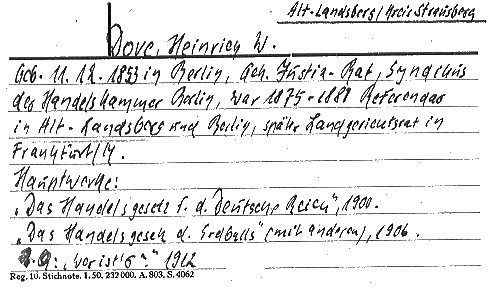 Alt-Landsberg/Kreis Strausberg
Dove, Heinrich W.
Geb. 11. 12. 1853 in Berlin, Geh. Justiz-Rat, Syndikus
der Handelskammer Berlin, war 1875-1881 Referendar
in Alt-Landsberg und Berlin, später Landgerichtsrat in
Frankfurt/M.
Hauptwerke:
„Das Handelsgesetz f. d. Deutsche Reich", 1900.
„Das Handelsgesetz d. Erdballs" (mit anderen), 1906.
„Wer ist's?" 1912
Reg. 10. Stichnote. 1. 50. 232 000. A. 803. S. 4062